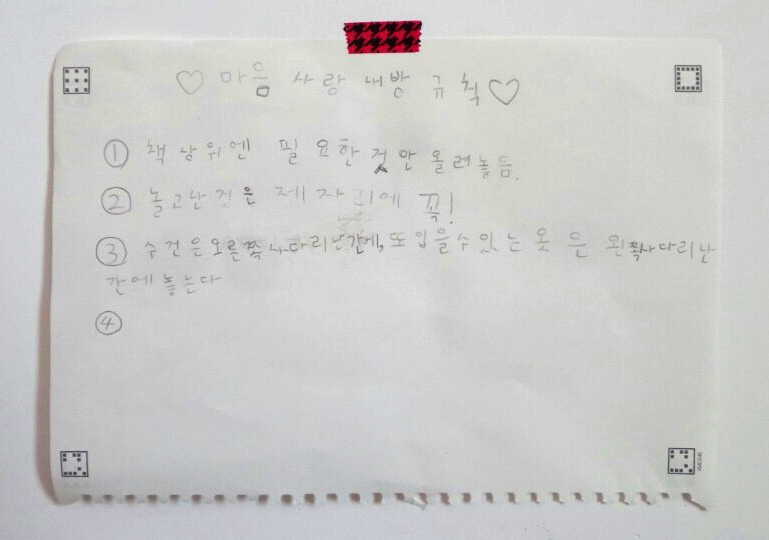 ♡ 마음 사랑 내방 규칙 ♡
① 책상위엔 필요한것만 올려놓음.
② 놀고난건은 제자리에 꼭!
③ 수건은오른쪽사다리난간에, 또 입을수있는 옷은 왼쪽사다리난
간에놓는다
④